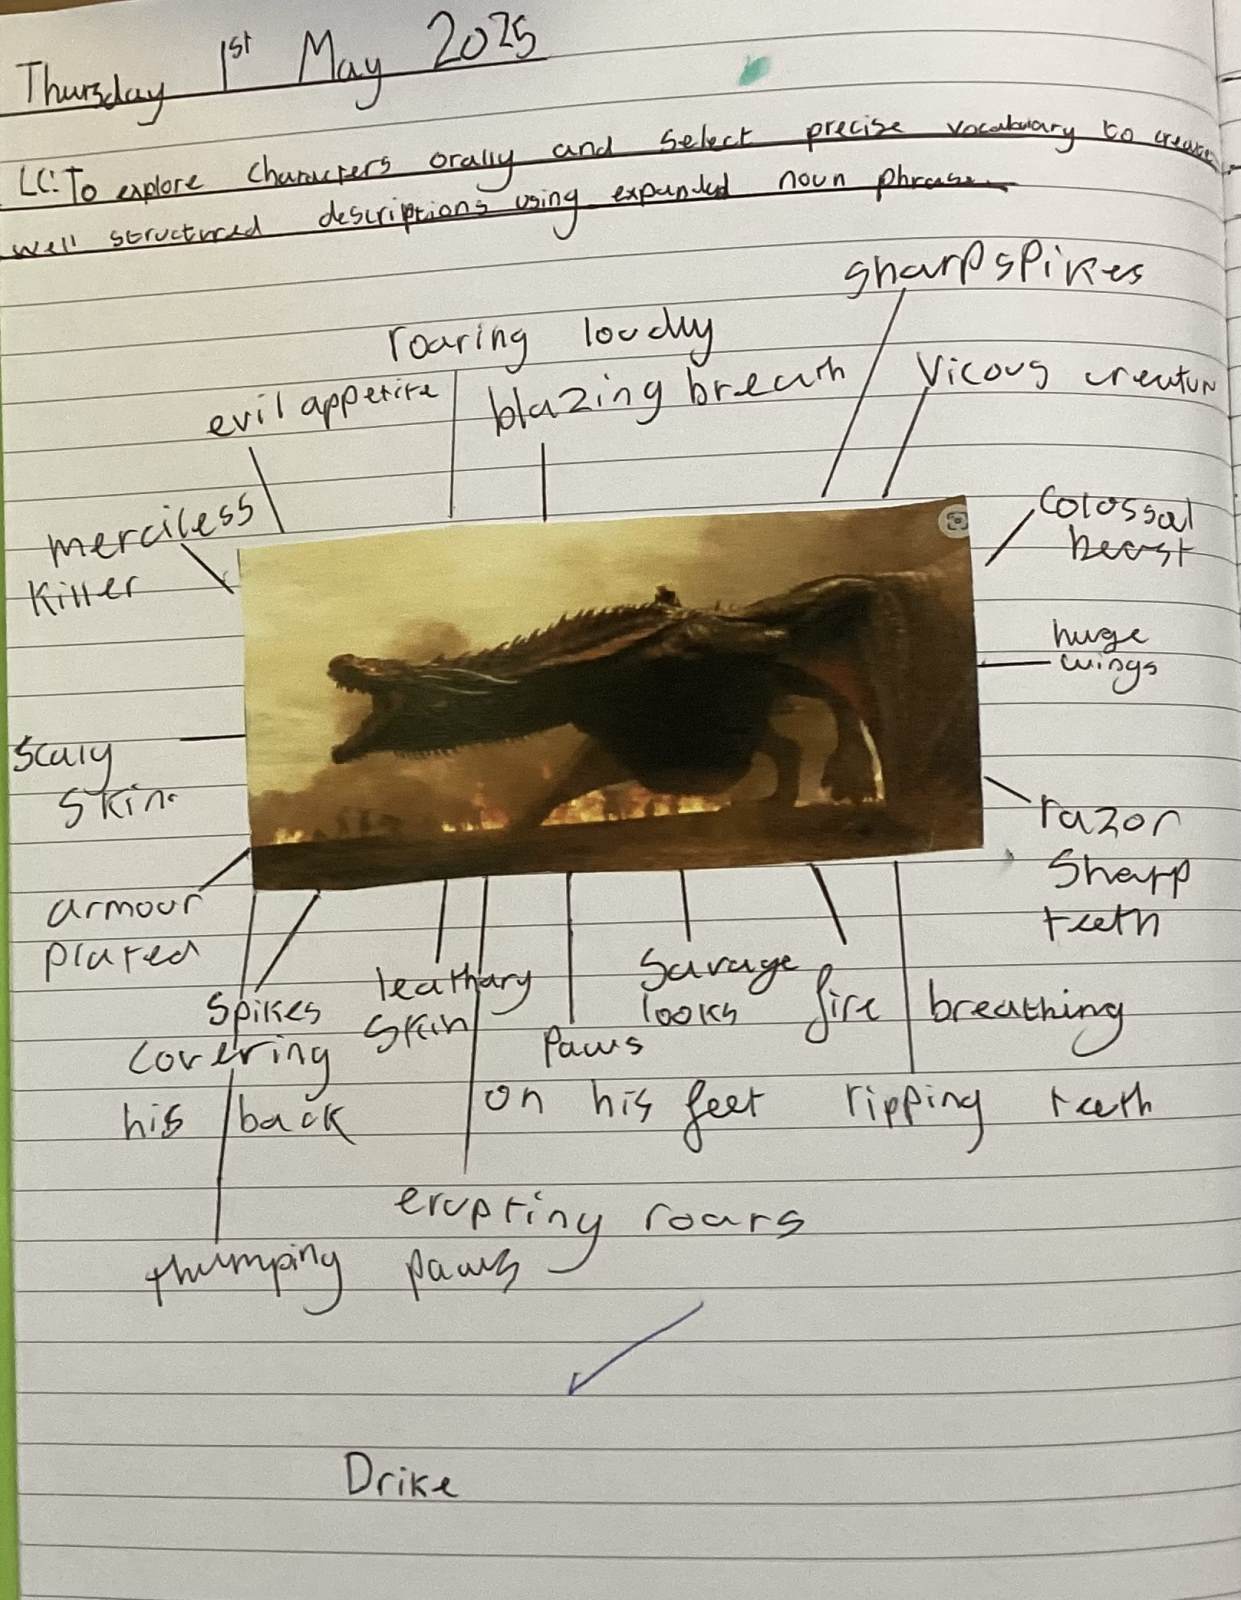 Thursday 1st May 2025
LC: To explore characters orally and select precise vocabulary to create
well structured descriptions using expanded noun phrases
sharp spikes
roaring loudly
evil appetite
blazing breath
Vicous creature
merciless
killer
Colossal
beast
huge
wings
scaly
skin.
razor
sharp
teeth
armour
plated
spikes
covering
his back
leathary
skin
Paws
on his feet
savage
looks
fire breathing
ripping teeth
erupting roars
thumping paws
Drike